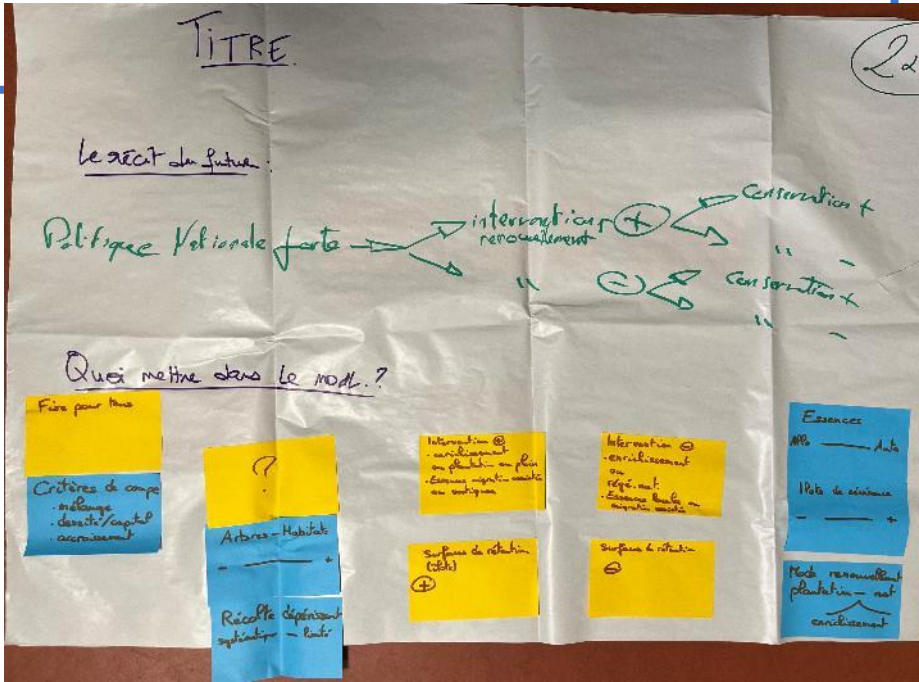 TITRE
22
Le récit du future :
Politique Nationale forte
interventions +
renouvellement
Conservation +
" -
" -
Conservation +
" -
Quoi mettre dans le modl. ?
Fixe pour tous
Critères de coupe
. mélange
. densité/capital
. accroissement
?
Arbres-Habitats
- +
Récolte dépérissant
systématique - limité
Intervention +
. enrichissement
ou plantation en plein
. Essences migration assistée
ou exotiques
Surfaces de rétention
(îlots)
+
Intervention -
. enrichissement
ou
régé. nat.
. Essences locales ou
migration assistée
Surfaces de rétention
-
Essences
Allo - Auto
Ilots de sénescence
- - +
Mode renouvellement
plantation - nat
enrichissement